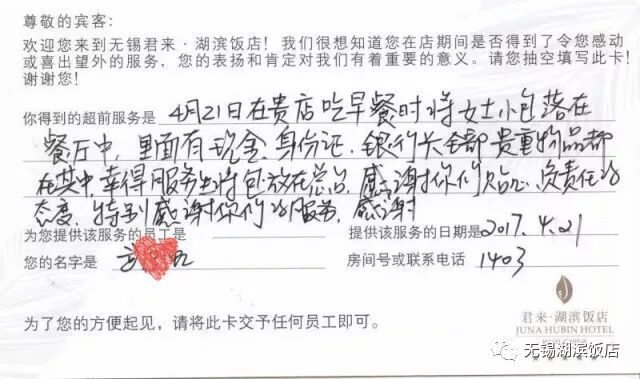 尊敬的宾客:
欢迎您来到无锡君来·湖滨饭店!我们很想知道您在店期间是否得到了令您感动
或喜出望外的服务,您的表扬和肯定对我们有着重要的意义。请您抽空填写此卡!
谢谢您!
你得到的超前服务是 4月21日在贵店吃早餐时将女士小包落在
餐厅中,里面有现金、身份证、银行卡全部贵重物品都
在其中,幸得服务生将包放在总台,感谢你们贴心、负责任的
态度,特别感谢你们的服务,感谢
为您提供该服务的员工是 提供该服务的日期是 2017.4.21
您的名字是 房间号或联系电话 1403
君来·湖滨饭店
JUNA HUBIN HOTEL
为了您的方便起见,请将此卡交予任何员工即可。
无锡湖滨饭店